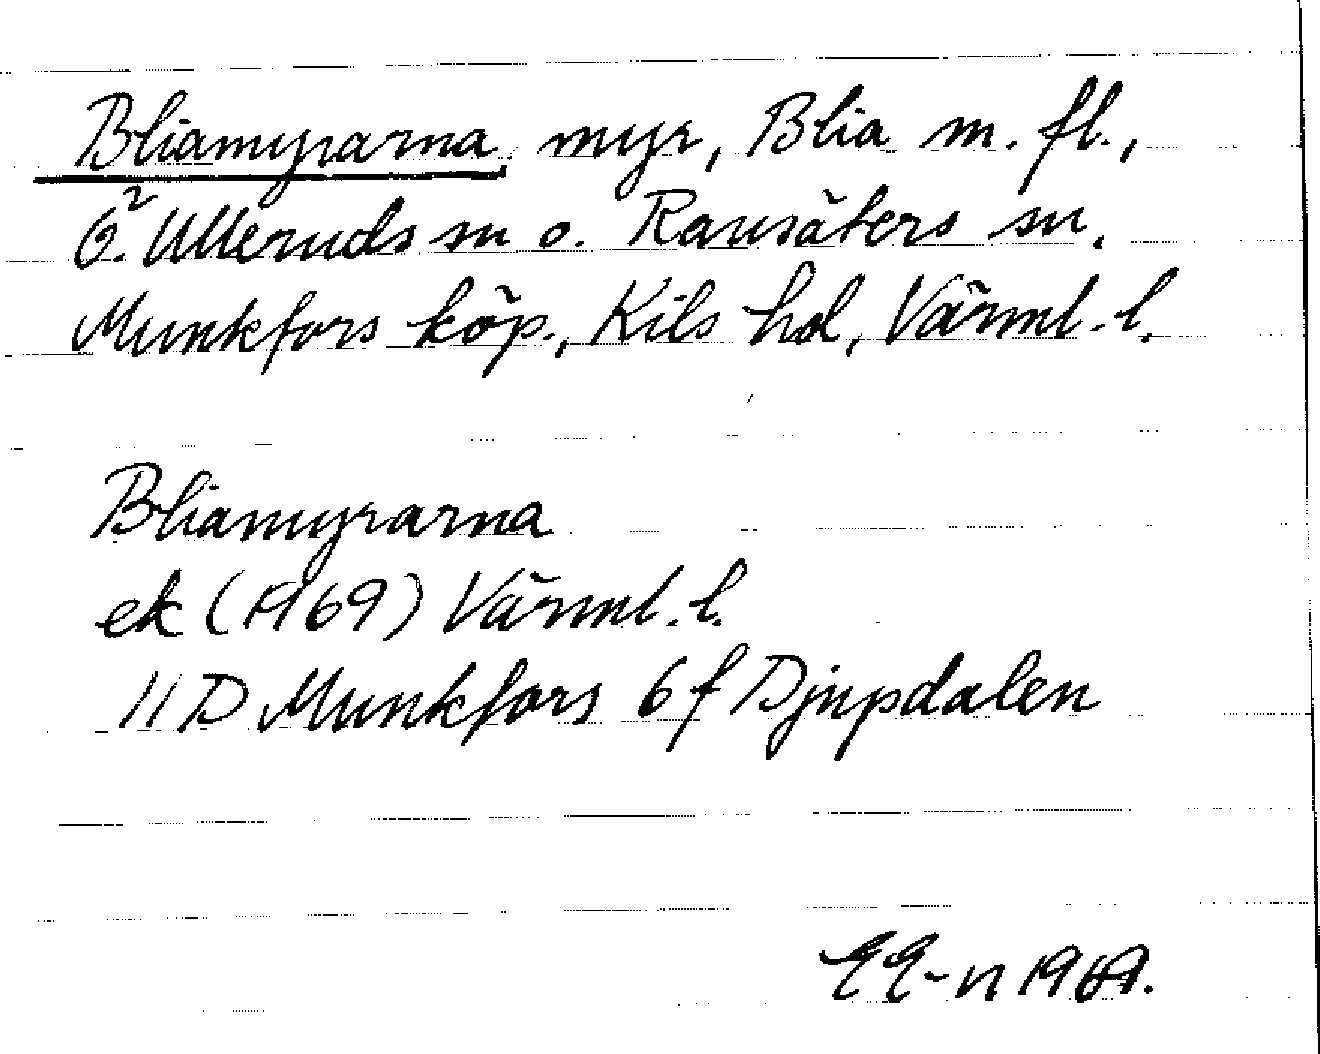 Bliamyrarna, myr, Blia m. fl.,
Ö. Ulleruds sn o. Ransäters sn,
Munkfors köp., Kils hd, Värml. l.
Bliamyrarna
ek (1969) Värml. l.
11 D Munkfors 6 f Djupdalen
EE-n 1969.